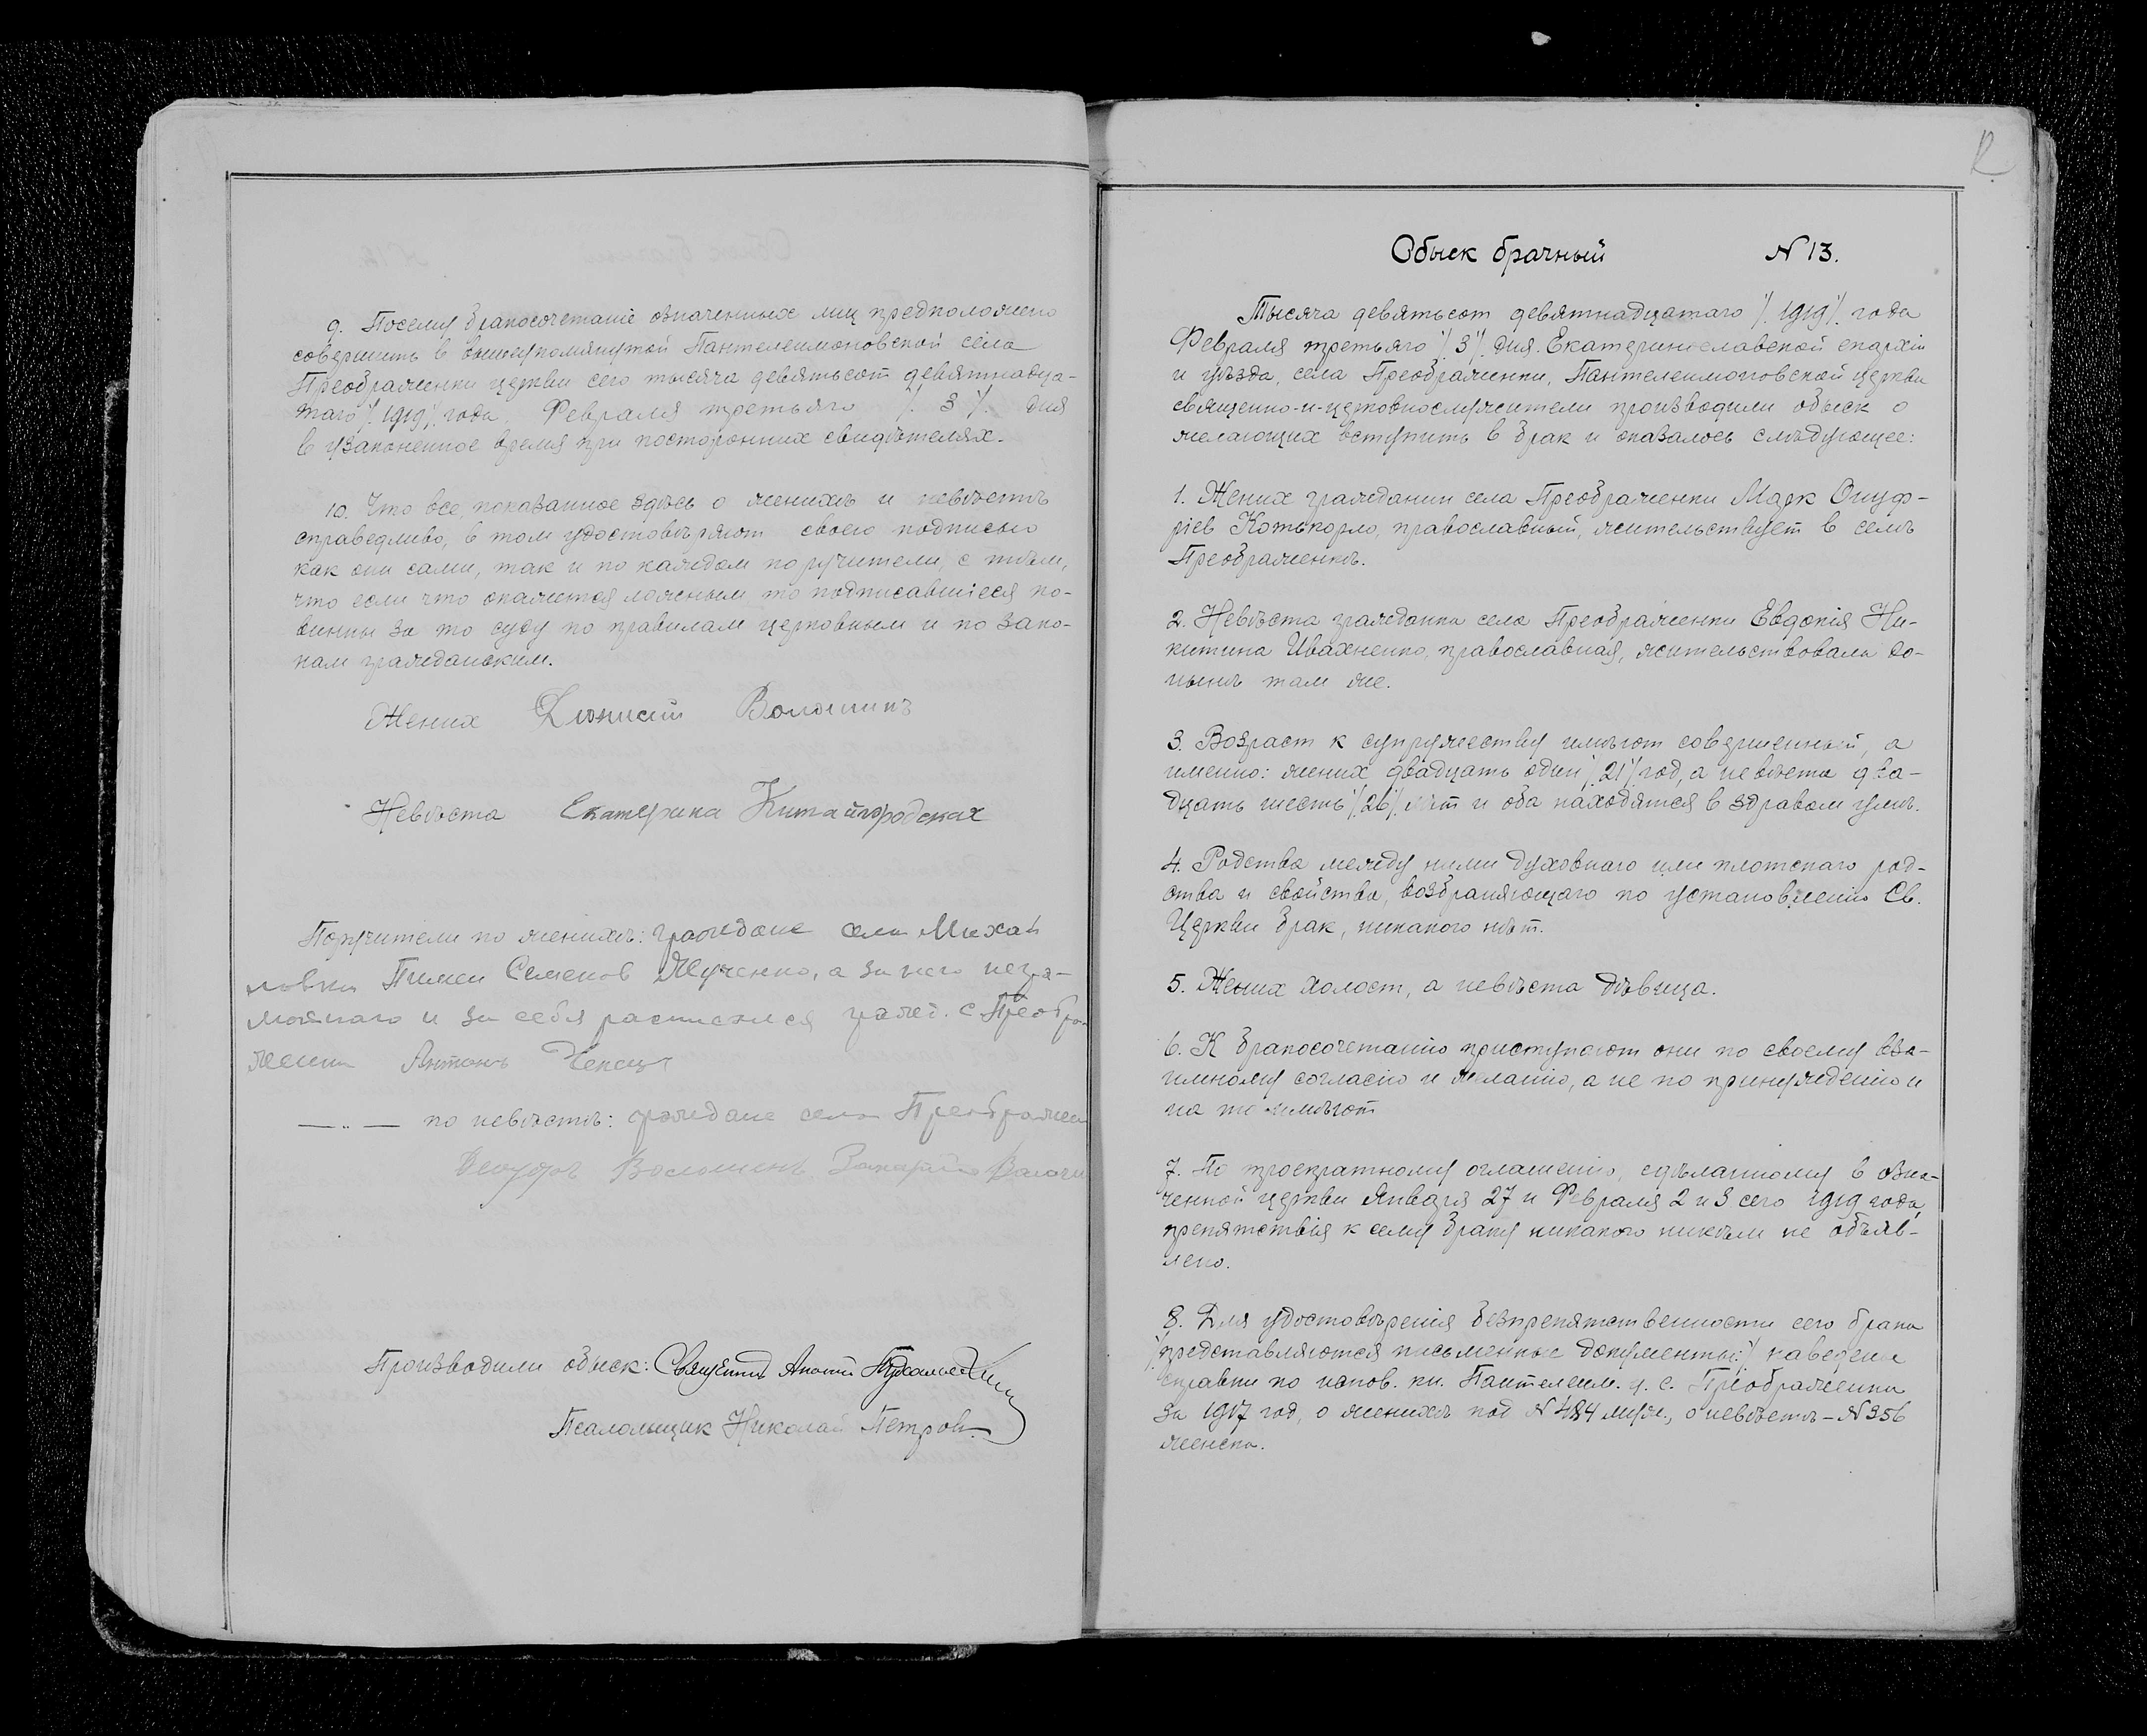 9. Посему бракосочетаніе означенных лиц предположено
совершить в вышеупомянутой Пантелеимоновской села
Преображенки церкви сего тысяча девятьсот девятнадца-
таго /. 1919 /. года, Февраля третьяго /. 3 /. дня
в узаконенное время при посторонних свидѣтелях.
10. Что все показанное здѣсь о женихѣ и невѣстѣ
справедливо, в том удостовѣряют своею подписью
как они сами, так и по каждом поручители, с тѣм,
что если что окажется ложным, то подписавшіеся по-
винны за то суду по правилам церковным и по зако-
нам гражданским.
Жених Дионисий Волошинъ
Невѣста Екатерина Китайгородская
Поручители по женихѣ: граждане села Михай
ловки Пимен Семенов, а за него негра-
мотнаго и за себя расписался гражд. с. Преобра-
женки Антонъ
—„— по невѣстѣ: граждане села Преображен
Волошинъ
Производили обыск: Священник
Псаломщик Николай Петров.
Обыск брачный N 13.
Тысяча девятьсот девятнадцатаго /. 1919 /. года
Февраля третьяго /. 3 /. дня. Екатеринославской епархіи
и уѣзда, села Преображенки, Пантелеимоновской церкви
священно-и-церковнослужители производили обыск о
желающих вступить в брак и оказалось слѣдующее:
1. Жених гражданин села Преображенки Марк Онуф-
ріев Котькорло, православный, жительствует в селѣ
Преображенкѣ.
2. Невѣста гражданка села Преображенки Евдокія Ни-
китина Ивахненко, православная, жительствовала до-
нынѣ там же.
3. Возраст к супружеству имѣют совершенный, а
именно: жених двадцать один /. 21 /. год, а невѣста два-
дцать шесть /. 26 /. лѣт и оба находятся в здравом умѣ.
4. Родства между ними духовнаго или плотскаго род-
ства и свойства, возбраняющаго по установленію Св.
Церкви брак, никакого нѣт.
5. Жених холост, а невѣста дѣвица.
6. К бракосочетанію приступают они по своему вза-
имному согласію и желанію, а не по принужденію и
на то имѣют
7. По троекратному оглашенію, сдѣланному в озна-
ченной церкви Января 27 и Февраля 2 и 3 сего 1919 года,
препятствія к сему браку никакого никѣм не объяв-
лено.
8. Для удостовѣренія безпрепятственности сего брака
/представляются письменные документы:/ наведены
справки по испов. кн. Пантелеим. ц. с. Преображенки
за 1917 год, о женихѣ под N 484 муж., о невѣстѣ – N 356
женска.